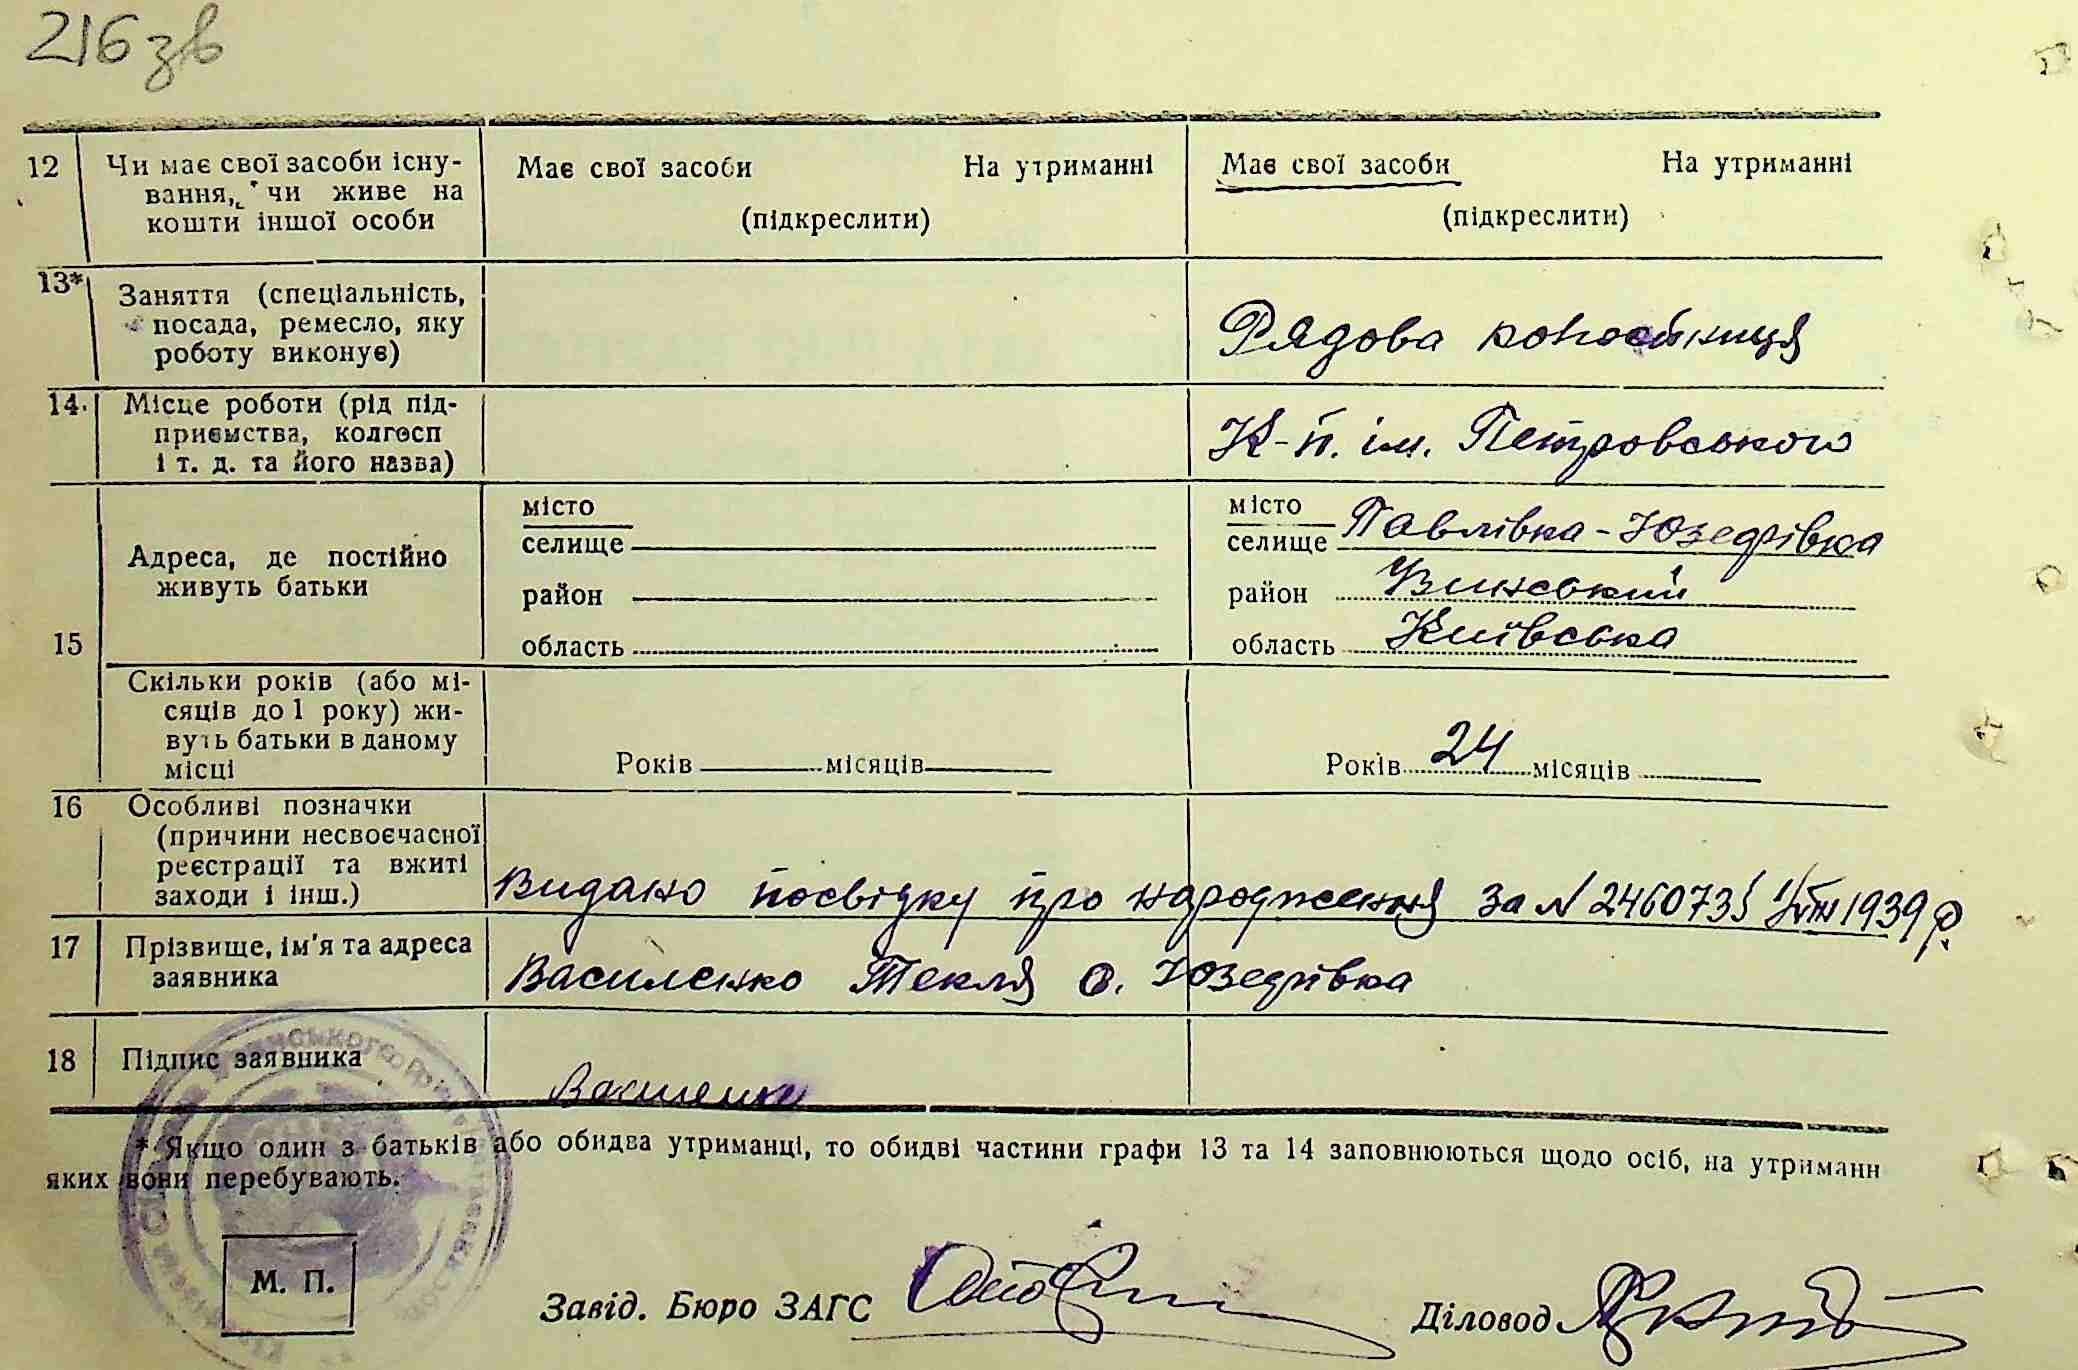 216 зв
12 Чи має свої засоби існу-
вання, чи живе на
кошти іншої особи
Має свої засоби На утриманні
(підкреслити)
Має свої засоби На утриманні
(підкреслити)
13* Заняття (спеціальність,
посада, ремесло, яку
роботу виконує)
Рядова
14. Місце роботи (рід під-
приємства, колгосп
і т. д. та його назва)
К-п. ім. Петровського
15
Адреса, де постійно
живуть батьки
місто
селище
район
область
місто
селище Павлівка-Юзефівка
район
область Київська
Скільки років (або мі-
сяців до 1 року) жи-
вуть батьки в даному
місці
Років місяців
Років 24 місяців
16 Особливі позначки
(причини несвоєчасної
реєстрації та вжиті
заходи і інш.)
Видано посвідку про народження за № 1939 р.
17 Прізвище, ім'я та адреса
заявника
Василенко Текля с. Юзефівка
18 Підпис заявника
Василенко
* Якщо один з батьків або обидва утриманці, то обидві частини графи 13 та 14 заповнюються щодо осіб, на утриманн
яких вони перебувають.
М. П.
Завід. Бюро ЗАГС
Діловод